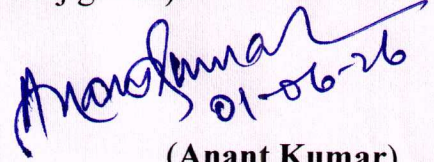 Anant Kumar
01-06-26
(Anant Kumar)